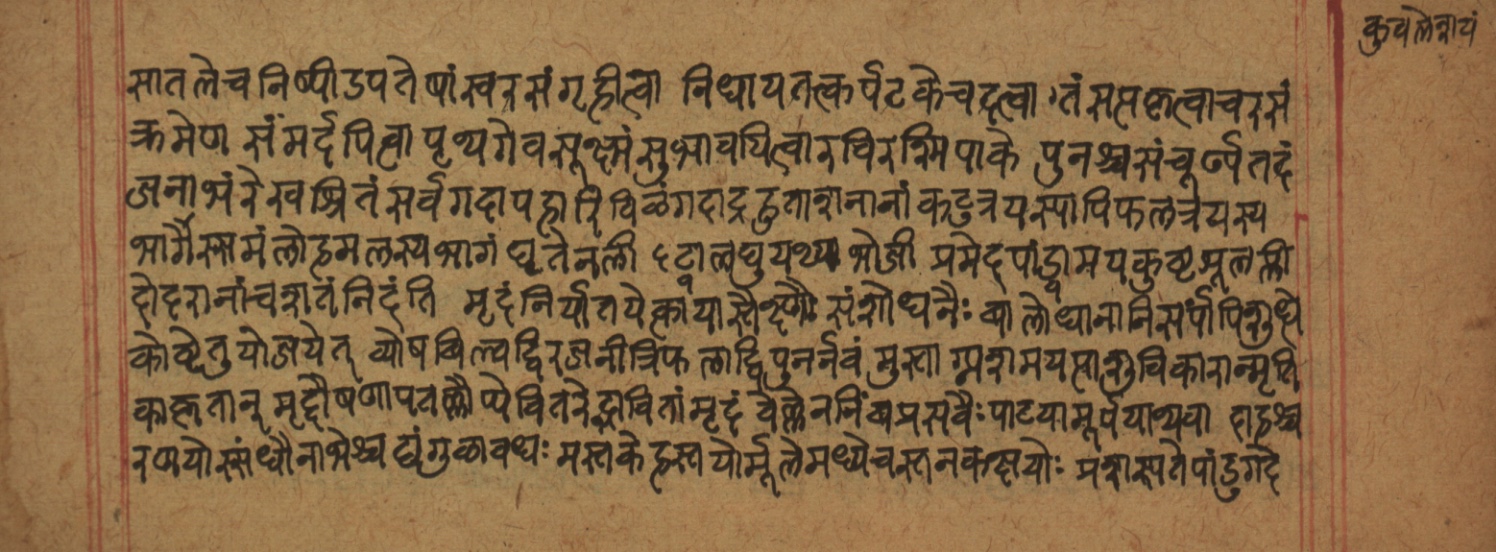 कुवलेत्रायं
सातलेचनिष्पीडपतेषांस्वरसंगृहीत्वा निधायतत्कर्पटकेचदत्वा ।तंसप्तकृत्वाचरसं
क्रमेण संमर्दपित्वा पृथगेवसूक्ष्मंसुभावयित्वारविरश्मिपाके पुनश्चसंचूर्ण्यतदं
जनाभंरेखश्रितंसर्वगदापहारि विळंगदाद्रहुताशनानांकटुत्रयस्यापिफलत्रेयस्य
भार्गैस्समंलोहमलस्यभागं घृतेनली ढ्वालघुपथ्यभोजी प्रमेहपांड्वामयकुष्टशूलप्ली
होदरानांचशतंनिहंति मृदंनिर्यातयेत्कायास्तैक्ष्णैः संशोधनैः वालोधानानिसर्पींषिशुध्धे
कोष्टेतुयोजयेत् व्योषबिल्वद्विरजनीत्रिफलाद्विपुनर्नवं मुस्ता विकारान्मृत्ति
काकृतान् मृद्दोषणाप वितरेद्भावितांमृदं वेल्लेननिंबप्रसवैः पाटयामूर्वयाथवा
रणयोस्संधौनाभेश्चद्यंगुळावधः मस्तकेहस्तयोर्मूलेमध्येचस्तनकक्षयोः पांडुगदे